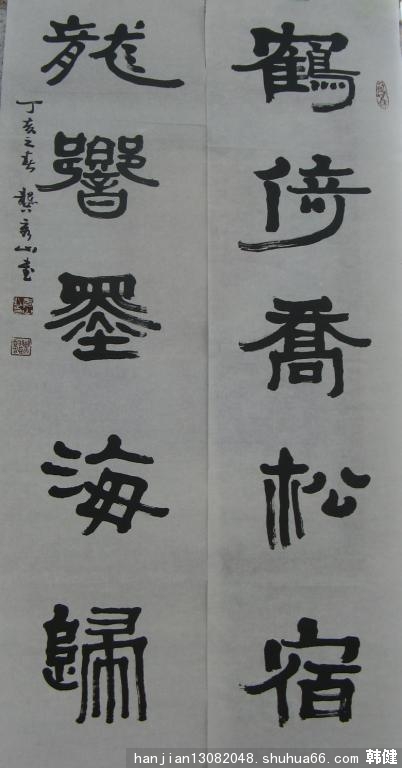 鶴倚喬松宿
龍響墨海歸
丁亥之春 龔 山書
hanjian13082048. shuhua66. com 韩健